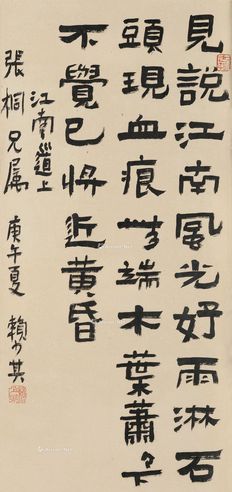 見說江南風光好雨淋石
頭現血痕無端木葉蕭々下
不覺已將近黃昏
江南道上
張桐兄屬 庚午夏 賴少其